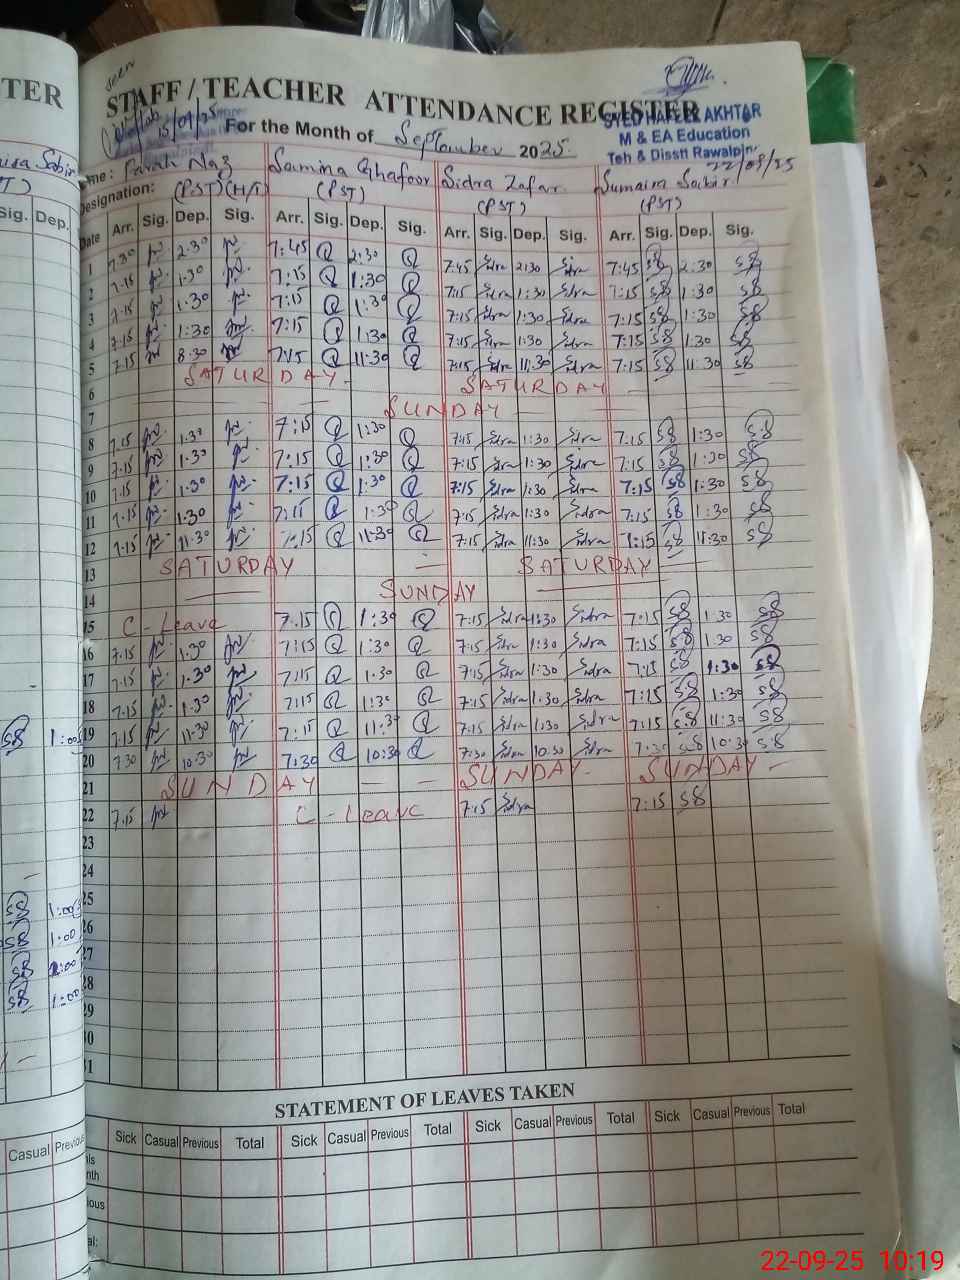 TER
seen
STAFF / TEACHER ATTENDANCE REGISTER
15/09/25
For the Month of September 2025.
SYED HAFEEZ AKHTAR
M & EA Education
Teh & Disstt Rawalpin
22/09/25
me: Farah Naz Samina Ghafoor Sidra Zafar. Sumaira Sabir
Designation: (PST)(H/T) (PST) (PST) (PST)
Date Arr. Sig. Dep. Sig. Arr. Sig. Dep. Sig. Arr. Sig. Dep. Sig. Arr. Sig. Dep. Sig.
1 7.30 2.30 7:45 Q 2:30 Q 7:45 Sidra 2:30 Sidra 7:45 SS 2:30 SS
2 7.15 1.30 7:15 Q 1:30 Q 7:15 Sidra 1:30 Sidra 7:15 SS 1:30 SS
3 7.15 1.30 7:15 Q 1:30 Q 7:15 Sidra 1:30 Sidra 7:15 SS 1:30 SS
4 7.15 1:30 7:15 Q 1:30 Q 7:15 Sidra 1:30 Sidra 7:15 SS 1:30 SS
5 7.15 8.30 7:15 Q 11:30 Q 7:15 Sidra 11:30 Sidra 7:15 SS 11:30 SS
6 SATURDAY SATURDAY
7 SUNDAY
8 7.15 1.30 7:15 Q 1:30 Q 7:15 Sidra 1:30 Sidra 7:15 SS 1:30 SS
9 7.15 1.30 7:15 Q 1:30 Q 7:15 Sidra 1:30 Sidra 7:15 SS 1:30 SS
10 7.15 1.30 7:15 Q 1:30 Q 7:15 Sidra 1:30 Sidra 7:15 SS 1:30 SS
11 7.15 1.30 7:15 Q 1:30 Q 7:15 Sidra 1:30 Sidra 7:15 SS 1:30 SS
12 7.15 11.30 7:15 Q 11:30 Q 7:15 Sidra 11:30 Sidra 7:15 SS 11:30 SS
13 SATURDAY SATURDAY
14 SUNDAY
15 C - Leave 7:15 Q 1:30 Q 7:15 Sidra 1:30 Sidra 7:15 SS 1:30 SS
16 7.15 1.30 7:15 Q 1:30 Q 7:15 Sidra 1:30 Sidra 7:15 SS 1:30 SS
17 7.15 1.30 7:15 Q 1:30 Q 7:15 Sidra 1:30 Sidra 7:15 SS 1:30 SS
18 7.15 1.30 7:15 Q 1:30 Q 7:15 Sidra 1:30 Sidra 7:15 SS 1:30 SS
19 7.15 11.30 7:15 Q 11:30 Q 7:15 Sidra 1:30 Sidra 7:15 SS 11:30 SS
20 7.30 10.30 7:30 Q 10:30 Q 7:30 Sidra 10:30 Sidra 7:30 SS 10:30 SS
21 SUNDAY SUNDAY SUNDAY
22 7.15 C - Leave 7:15 Sidra 7:15 SS
23
24
25
26
27
28
29
30
31
STATEMENT OF LEAVES TAKEN
Sick Casual Previous Total Sick Casual Previous Total Sick Casual Previous Total Sick Casual Previous Total
22-09-25 10:19